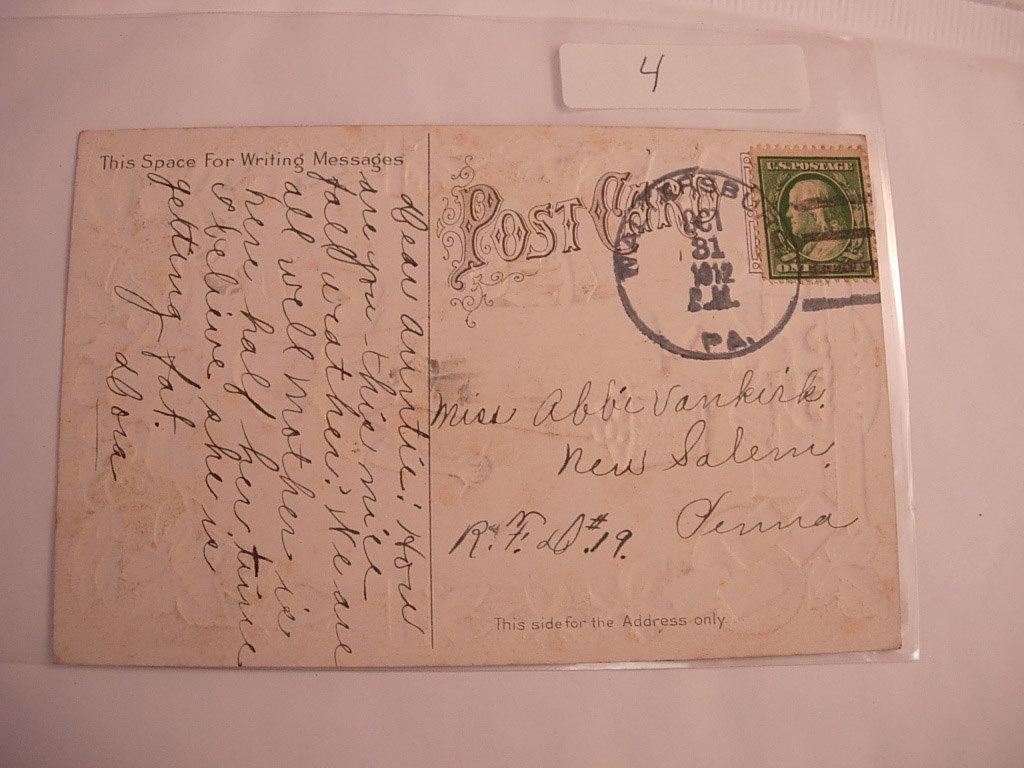 4
This Space For Writing Messages
Dear Auntie: How
are you this nice
fall weather? We are
all well Mother is
here half her time
is believe she is
getting fat.
Dora
POST CARD
OCT
31
1912
P.M.
PA.
U.S. POSTAGE
Miss Abbie Vankirk.
New Salem.
Penna
R.F.D.#19.
This side for the Address only.